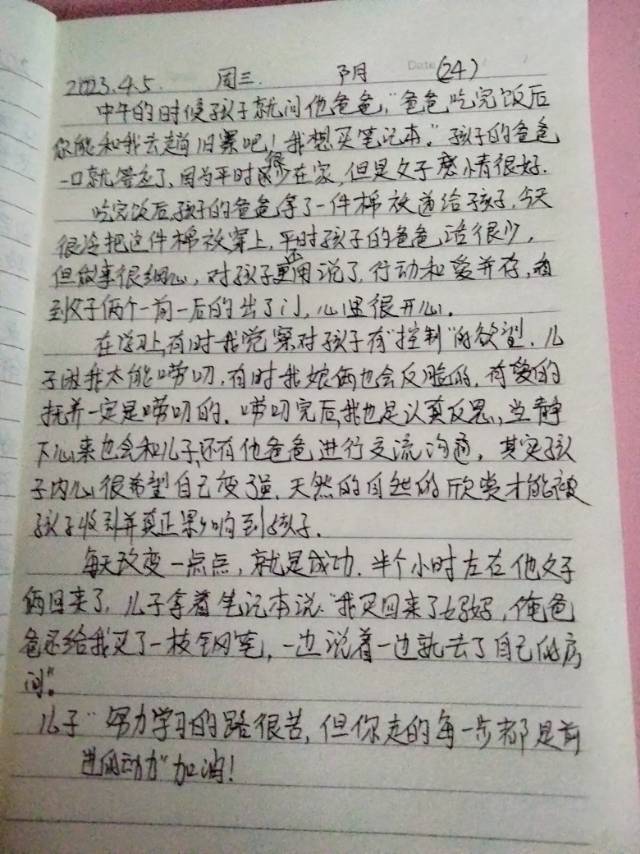 2023.4.5. 周三. 阴 Date (24)
中午的时候孩子就问他爸爸,"爸爸吃完饭后
你能和我去趟旧县吧!我想买笔记本."孩子的爸爸
一口就答应了,因为平时很少在家,但是父子感情很好.
吃完饭后,孩子的爸爸拿了一件棉袄递给孩子,今天
很冷把这件棉袄穿上,平时孩子的爸爸话很少,
但做事很细心,对孩子更不用说了,行动和爱并存,看
到父子俩个一前一后的出了门,心里很开心.
在学习上有时我觉察对孩子有"控制"的欲望.儿
子嫌我太能唠叨,有时我娘俩也会反脸的,有爱的
抚养一定是唠叨的.唠叨完后,我也是认真反思,当静
下心来也会和儿子,还有他爸爸进行交流沟通,其实孩
子内心很希望自己变强.天然的自然的欣赏才能被
孩子收到并真正影响到孩子.
每天改变一点点,就是成功.半个小时左右他父子
俩回来了,儿子拿着笔记本说:"我买回来了妈妈,俺爸
爸还给我买了一枝钢笔,一边说着一边就去了自己的房
间".
儿子"努力学习的路很苦,但你走的每一步都是前
进的动力"加油!